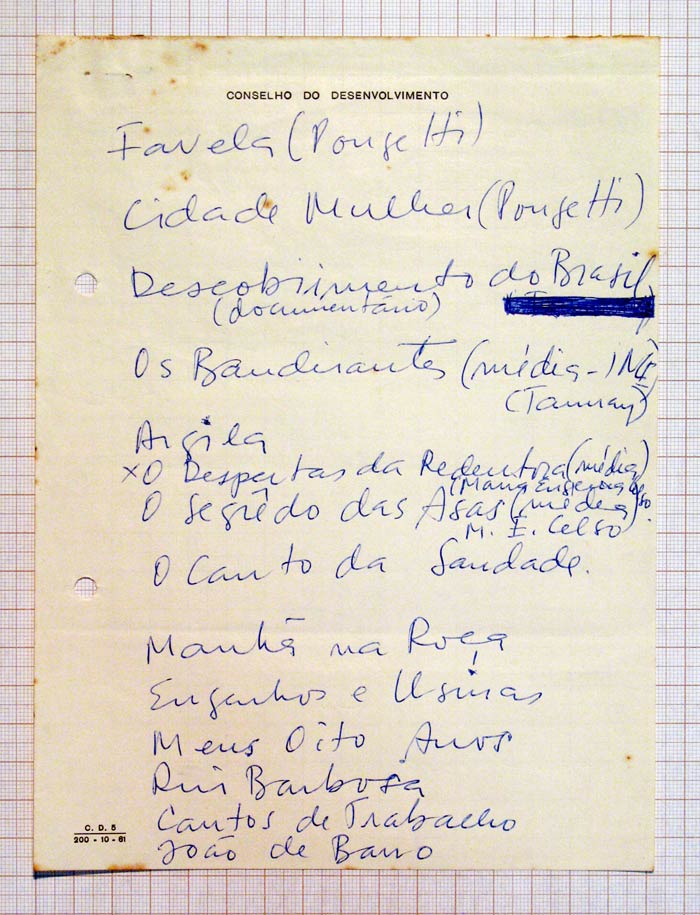 CONSELHO DO DESENVOLVIMENTO
Favela (Pongetti)
Cidade Mulher (Pongetti)
Descobrimento do Brasil
(documentário)
Os Bandeirantes (média -
(Taunay)
Argila
x O Despertar da Redentora (média)
(Maria Eugenia Celso
O Segrêdo das Asas (média)
M. E. Celso
O Canto da Saudade.
Manhã na Roça
Engenhos e Usinas
Meus Oito Anos
Rui Barbosa
Cantos de Trabalho
João de Barro
C. D. 5
200 - 10 - 61